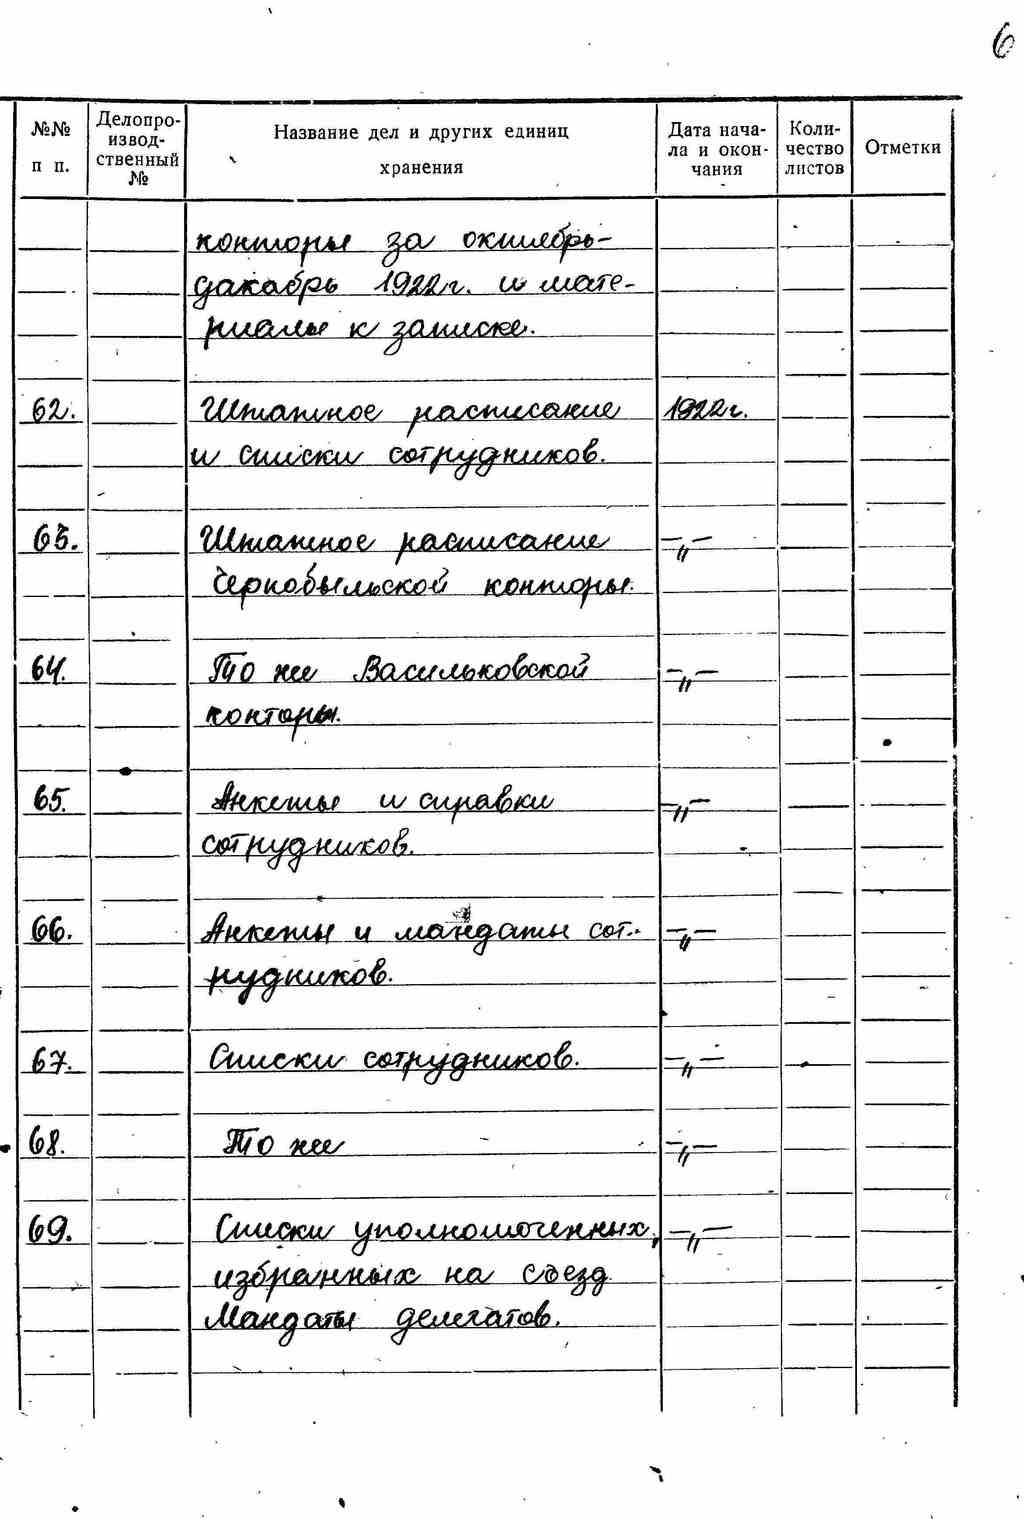 6
№№ п п.
Делопро-
извод-
ственный
№
Название дел и других единиц
хранения
Дата нача-
ла и окон-
чания
Коли-
чество
листов
Отметки
конторы за октябрь-
декабрь 1922г. и мате-
риалы к записке.
62. Штатное расписание 1922г.
и списки сотрудников.
63. Штатное расписание —"—
Чернобыльской конторы.
64. То же Васильковской —"—
конторы.
65. Анкеты и справки —"—
сотрудников.
66. Анкеты и мандаты сот- —"—
рудников.
67. Списки сотрудников. —"—
68. То же —"—
69. Списки уполномоченных, —"—
избранных на съезд.
Мандаты делегатов.